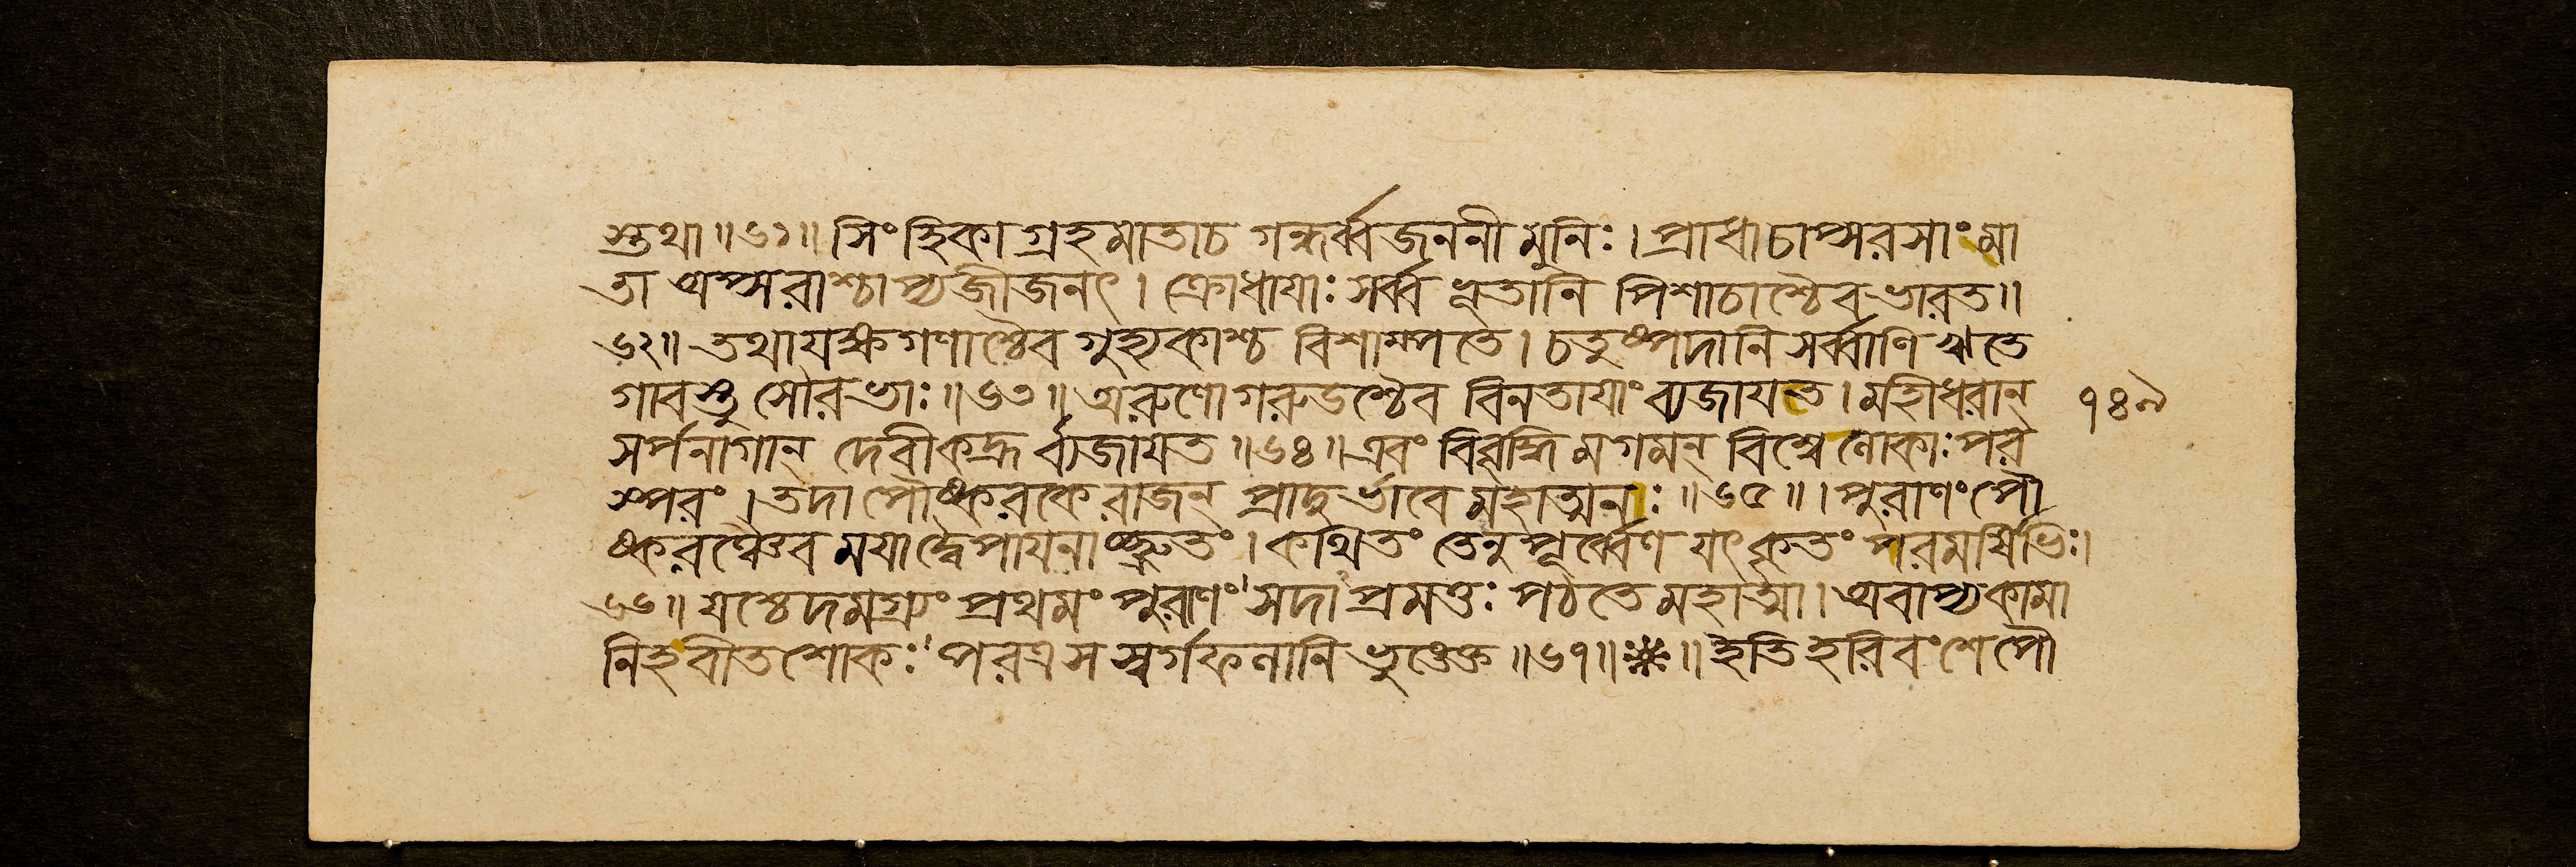 স্তথা॥৬১॥ সিংহিকা গ্রহমাতাচ গন্ধর্ব্বজননী মুনিঃ। প্রাধা চাপ্সরসাং মা
তা অপ্সরাশ্চাপ্যজীজনৎ। ক্রোধাযাঃ সর্ব্বভূতানি পিশাচাশ্চৈব ভারত॥
৬২॥ তথা যক্ষগণাশ্চৈব গুহ্যকাশ্চ বিশাম্পতে। চতুষ্পদানি সর্ব্বাণি ঋতে
গাবস্তু সৌরভাঃ॥৬৩॥ অরুণো গরুডশ্চৈব বিনতাযাং ব্যজাযত। মহীধরান্ ৭৪৯
সর্পনাগান্ দেবী কদ্রূর্ব্যজাযত॥৬৪॥ এবং বিবৃদ্ধিমগমন্ বিশ্বে লোকাঃ পর
স্পরং। তদা পৌষ্করকে রাজন্ প্রাদুর্ভাবে মহাত্মনঃ॥৬৫॥। পুরাণং পৌ
ষ্করঞ্চৈব মযা দ্বৈপাযনাচ্ছ্রুতং। কথিতং তেনুপূর্ব্বেণ যৎ কৃতং পরমর্ষিভিঃ।
৬৬॥ যশ্চেদমগ্র্যং প্রথমং পুরাণং সদাপ্রমত্তঃ পঠতে মহাত্মা। অবাপ্যকামা
নিহবীতশোকঃ পরত্র স স্বর্গফলানি ভুঙ্ক্তে॥৬৭॥❋॥ ইতি হরিবংশে পৌ